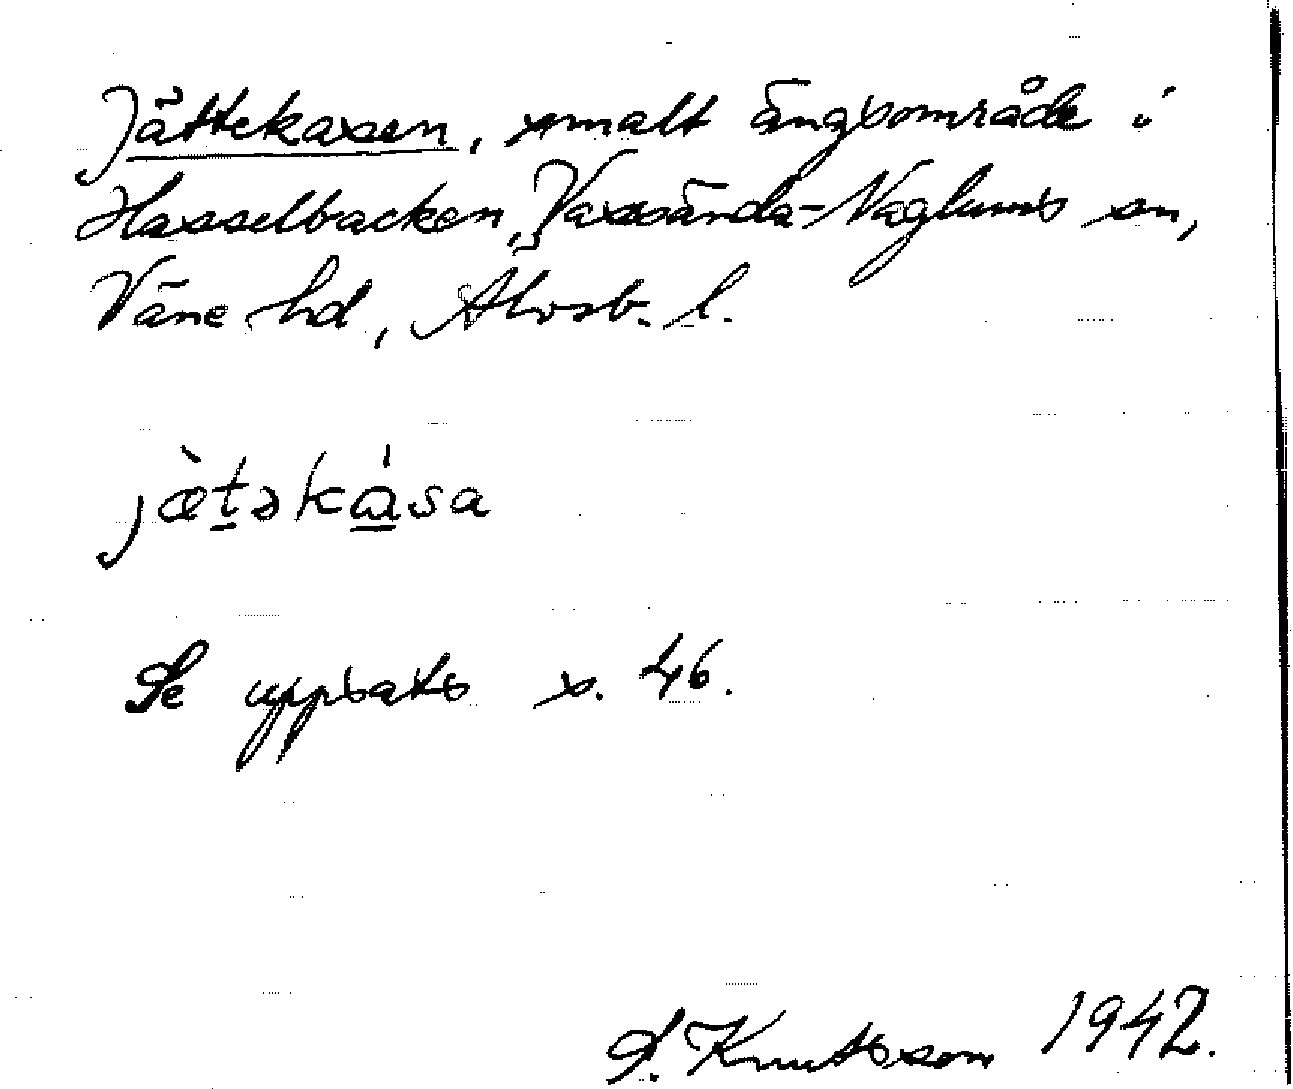 Jättekasen, smalt ängsområde i
Hasselbacken, Vassända-Naglums sn,
Väne hd, Älvsb. l.
jæ̀t̠əkɑ̠́sa
Se uppsats s. 46.
Knutsson 1942.